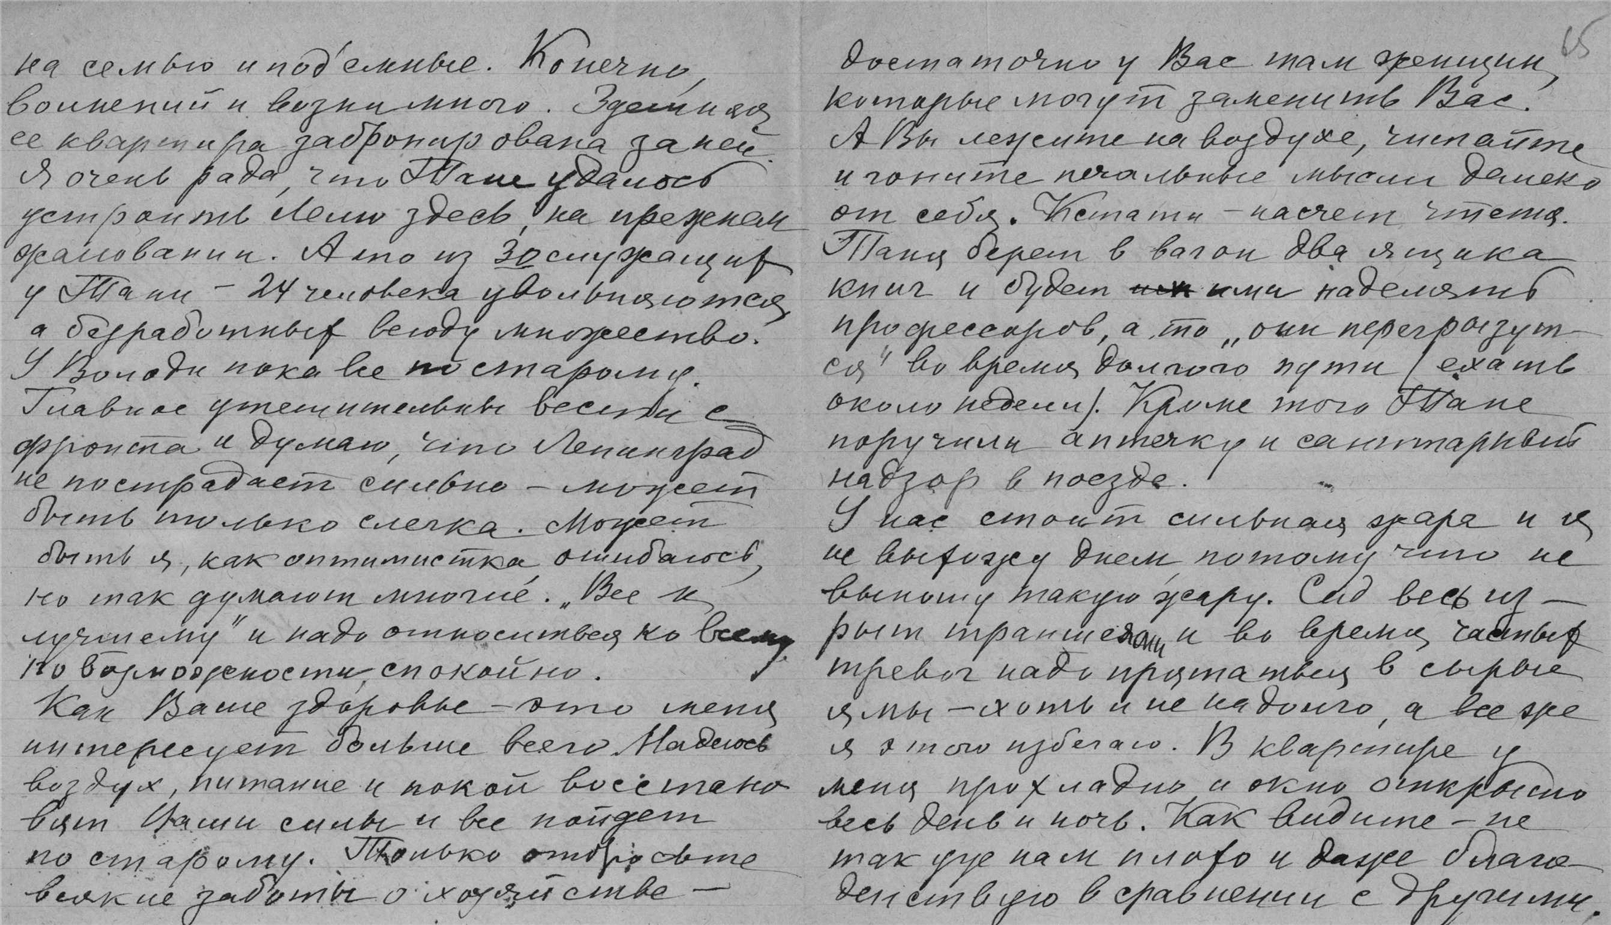 на семью и под'емные. Конечно,
волнений и возни много. Здешняя
ее квартира забронирована за ней.
Я очень рада, что Тане удалось
устроить Лелю здесь, на прежнем
жаловании. А то из 30 служащих
у Тани – 24 человека увольняются,
а безработных всюду множество.
У Володи пока все по старому.
Главное утешительны вести с
фронта и думаю, что Ленинград
не пострадает сильно – может
быть только слегка. Может
быть я, как оптимистка, ошибаюсь,
но так думают многие. „Все к
лучшему" и надо относиться ко всему
по возможности спокойно.
Как Ваше здоровье – это меня
интересует больше всего. Надеюсь
воздух, питание и покой восстано
вят Ваши силы и все пойдет
по старому. Только отбросьте
всякие заботы о хозяйстве –
65
достаточно у Вас там женщин,
которые могут заменить Вас.
А Вы лежите на воздухе, читайте
и гоните печальные мысли далеко
от себя. Кстати – насчет чтения.
Таня берет в вагон два ящика
книг и будет ими наделять
профессоров, а то „они перегрызут-
ся" во время долгого пути (ехать
около недели). Кроме того Тане
поручили аптечку и санитарный
надзор в поезде.
У нас стоит сильная жара и я
не выхожу днем, потому что не
выношу такую жару. Сад весь из-
рыт траншеями и во время частых
тревог надо прятаться в сырые
ямы – хоть и не надолго, а все же
я этого избегаю. В квартире у
меня прохладно и окно открыто
весь день и ночь. Как видите – не
так уж нам плохо и даже благо
денствую в сравнении с другими.